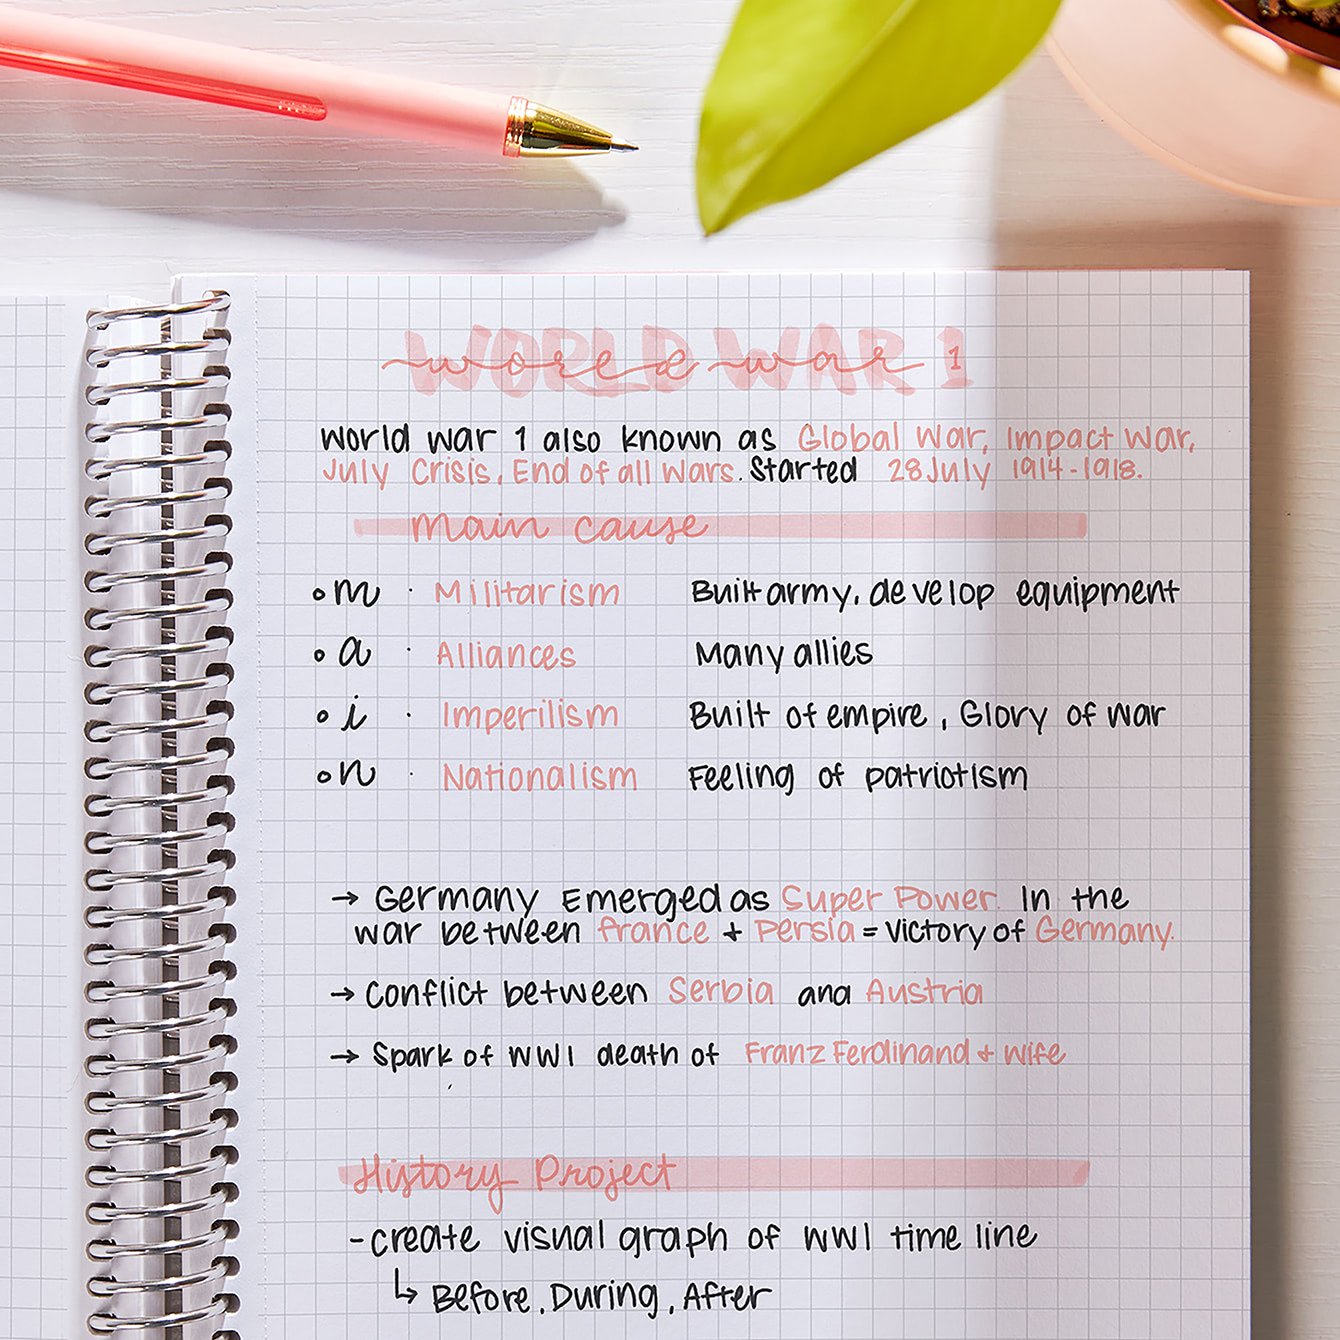 WORLD WAR 1
world war 1
World war 1 also known as Global War, Impact War,
July Crisis, End of all Wars. Started 28 July 1914-1918.
Main cause
m · Militarism Built army, develop equipment
a · Alliances Many allies
i · Imperilism Built of empire, Glory of War
n · Nationalism Feeling of patriotism
→ Germany Emerged as Super Power. In the
war between France + Persia = Victory of Germany.
→ Conflict between Serbia and Austria
→ Spark of WW1 death of Franz Ferdinand + Wife
History Project
- Create visual graph of WW1 time line
↳ Before, During, After